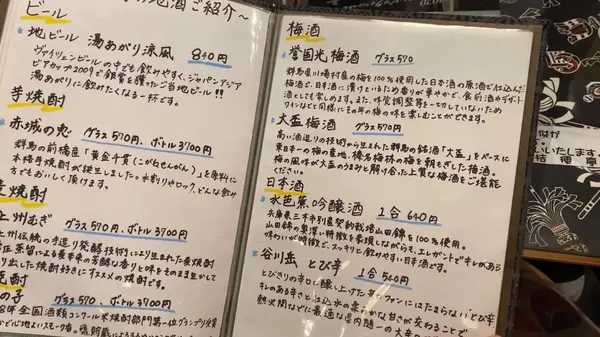 地酒ご紹介～
ビール
地ビール 湯あがり涼風 840円
ヴァイツェンビールの中でも飲みやすく、ジャパンアジア
ビアカップ2009で銀賞を獲ったご当地ビール!!
湯あがりに飲みたくなる一杯です。
芋焼酎
赤城の恵 グラス570円、ボトル3700円
群馬の前橋産「黄金千貫(こがねせんがん)」を原料に
本格芋焼酎が誕生しました。水割りやロック、どんな飲み
方でもおいしく頂けます。
麦焼酎
上州むぎ グラス570円、ボトル3700円
上州伝統の手造り発酵技術により生まれた麦焼酎
り出した焼酎好きにオススメの焼酎です。
焼酎
の子 グラス570、ボトル3700円
8年全国酒類コンクール米焼酎部門第一位グランプリ受賞
梅酒
誉国光 梅酒 グラス570
群馬県川場村産の梅を100%使用した日本酒の原酒で仕込んだ
梅酒で、日本酒に漬けているため香りが華やかで、食前酒やデザート
酒としても楽しめます。また、味覚調整等を一切していないため
ワインなどと同様にその年の味を楽しむことができます。
大盃 梅酒 グラス570円
高い酒造りの技術から生まれた群馬の銘酒「大盃」をベースに
東日本一の梅の産地、榛名梅林の梅を朝もぎした梅酒。
梅の風味が大盃のうまみと解け合った上質な梅酒をご堪能
ください。
日本酒
水芭蕉 吟醸酒 1合 640円
兵庫県三木市別産契約栽培山田錦を100%使用。
山田錦の奥深い特徴を表現しながらも、エレガントでキレがある
味わいが特徴で、スッキリと飲みやすい日本酒です。
谷川岳 とび辛 1合 540円
とびきりの辛口に醸し上げた辛口ファンにはたまらない「とび辛」
キレのある辛さと仕込水の柔らかな甘さが交わることで
熱火間などに最適な県内随一の大辛口